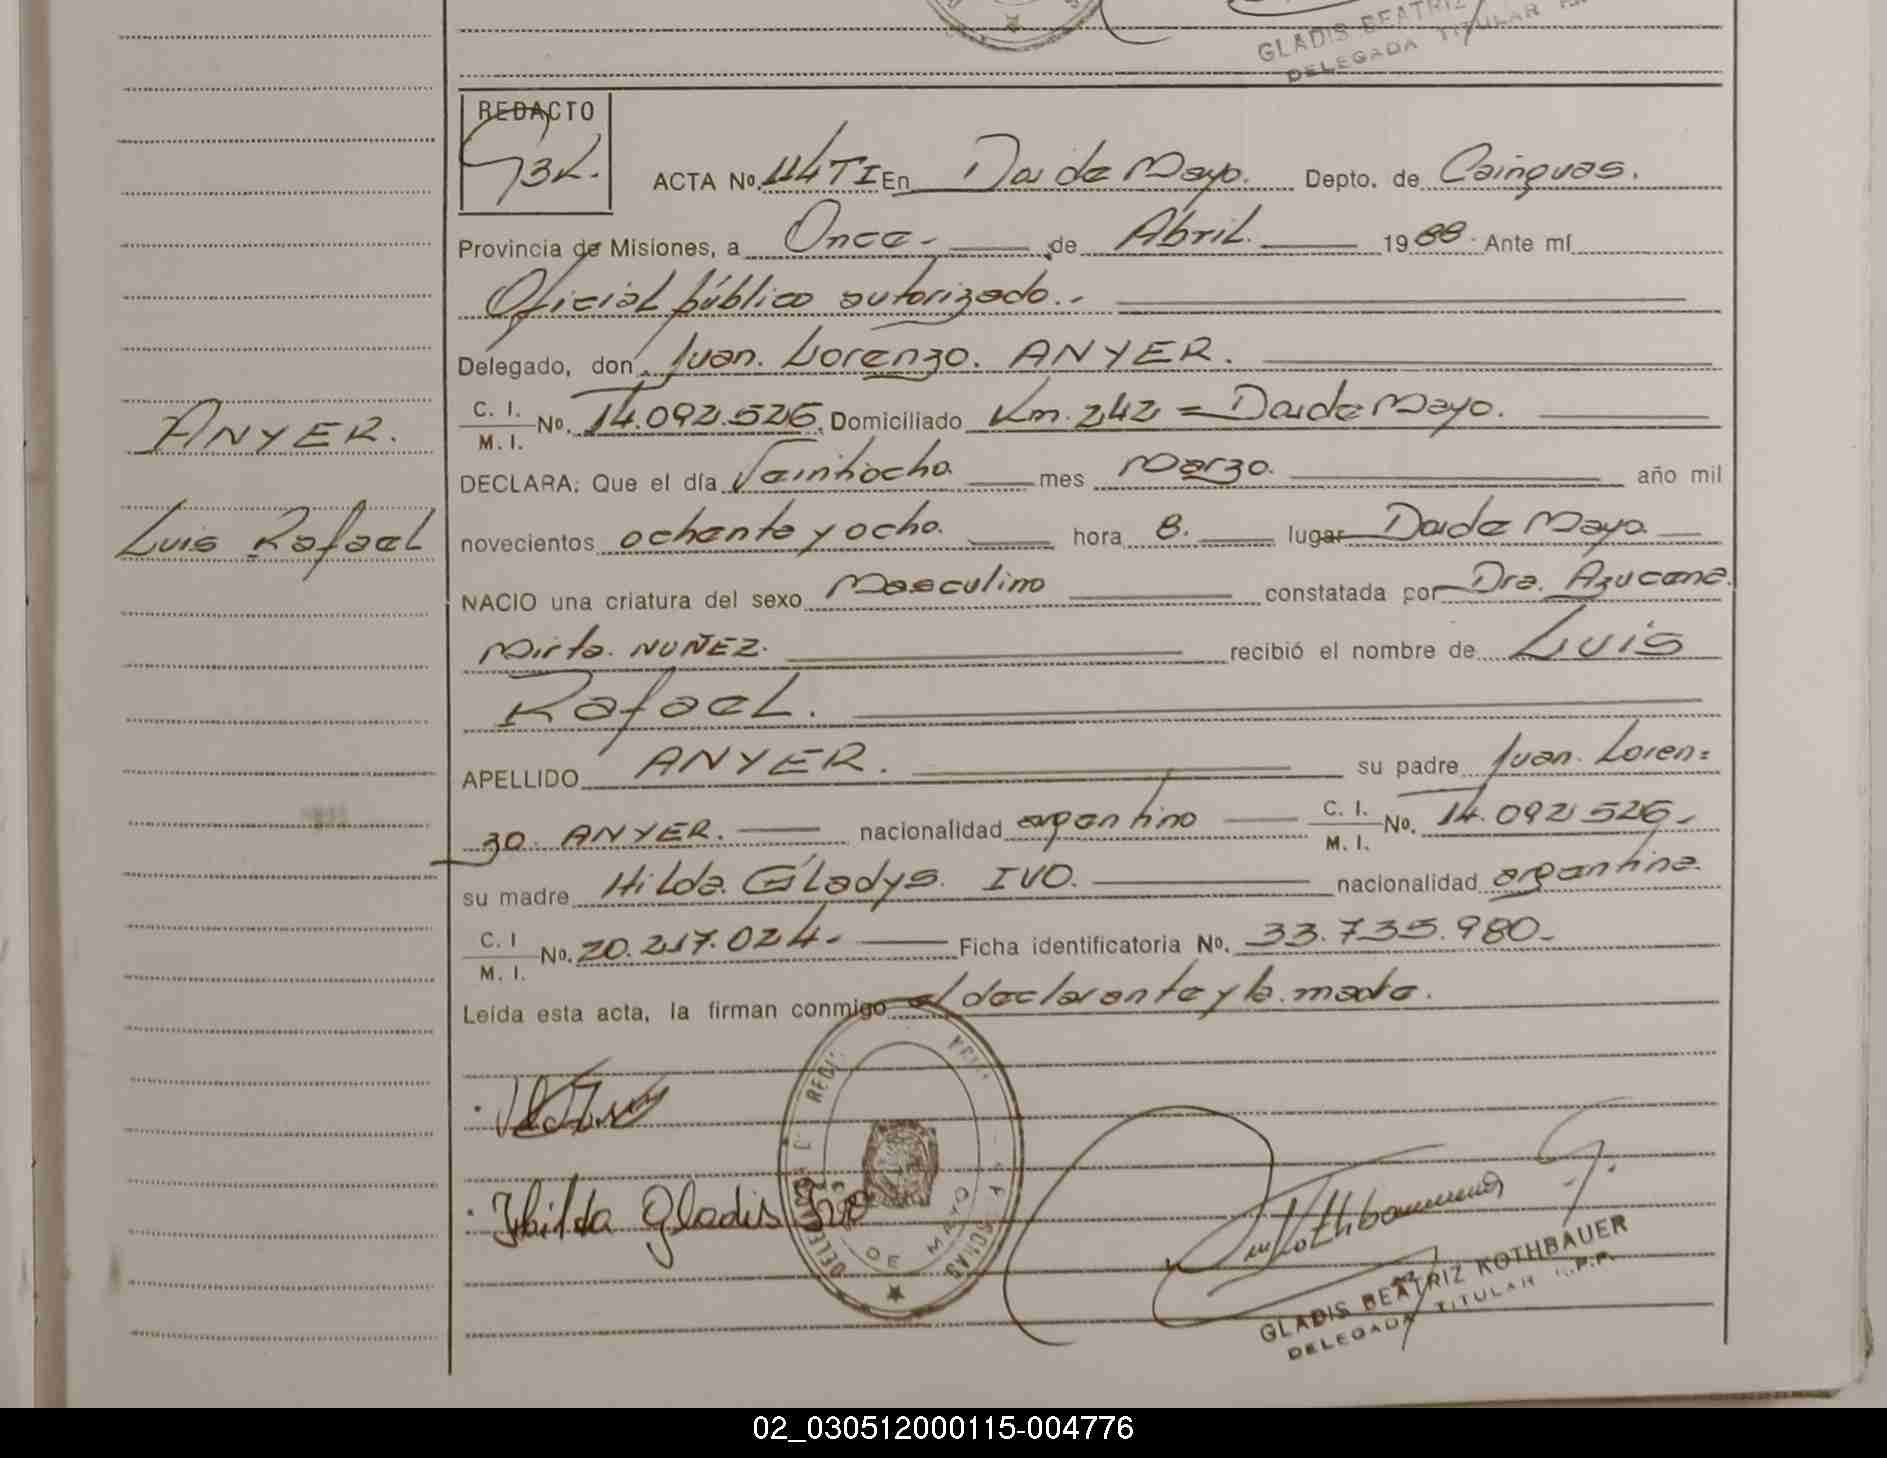 GLADIS BEATRIZ
DELEGADA TITULAR
REDACTO
ACTA No. 114 TI En Dos de Mayo. Depto. de Cainguas.
Provincia de Misiones, a Once - de Abril. 1988 Ante mí
Oficial público autorizado. -
Delegado, don Juan. Lorenzo. ANYER.
C. I.
M. I. No. 14.092.526. Domiciliado Km. 242 = Dos de Mayo.
ANYER.
DECLARA: Que el día Veintiocho. mes Marzo. año mil
Luis Rafael
novecientos ochenta y ocho. hora 8. lugar Dos de Mayo.
NACIO una criatura del sexo Masculino constatada por Dra. Azucena.
Mirta. NUÑEZ. recibió el nombre de Luis
Rafael.
APELLIDO ANYER. su padre Juan. Loren=
zo. ANYER. nacionalidad argentino C. I.
M. I. No. 14.092 526.-
su madre Hilda. Gladys. IVO. nacionalidad argentina.
C. I
M. I. No. 20.217.024.- Ficha identificatoria No. 33.735.980.-
Leída esta acta, la firman conmigo el declarante y la madre.
Hilda Gladis Ivo
DE MAYO
GLADIS BEATRIZ KOTHBAUER
DELEGADA TITULAR
02_030512000115-004776